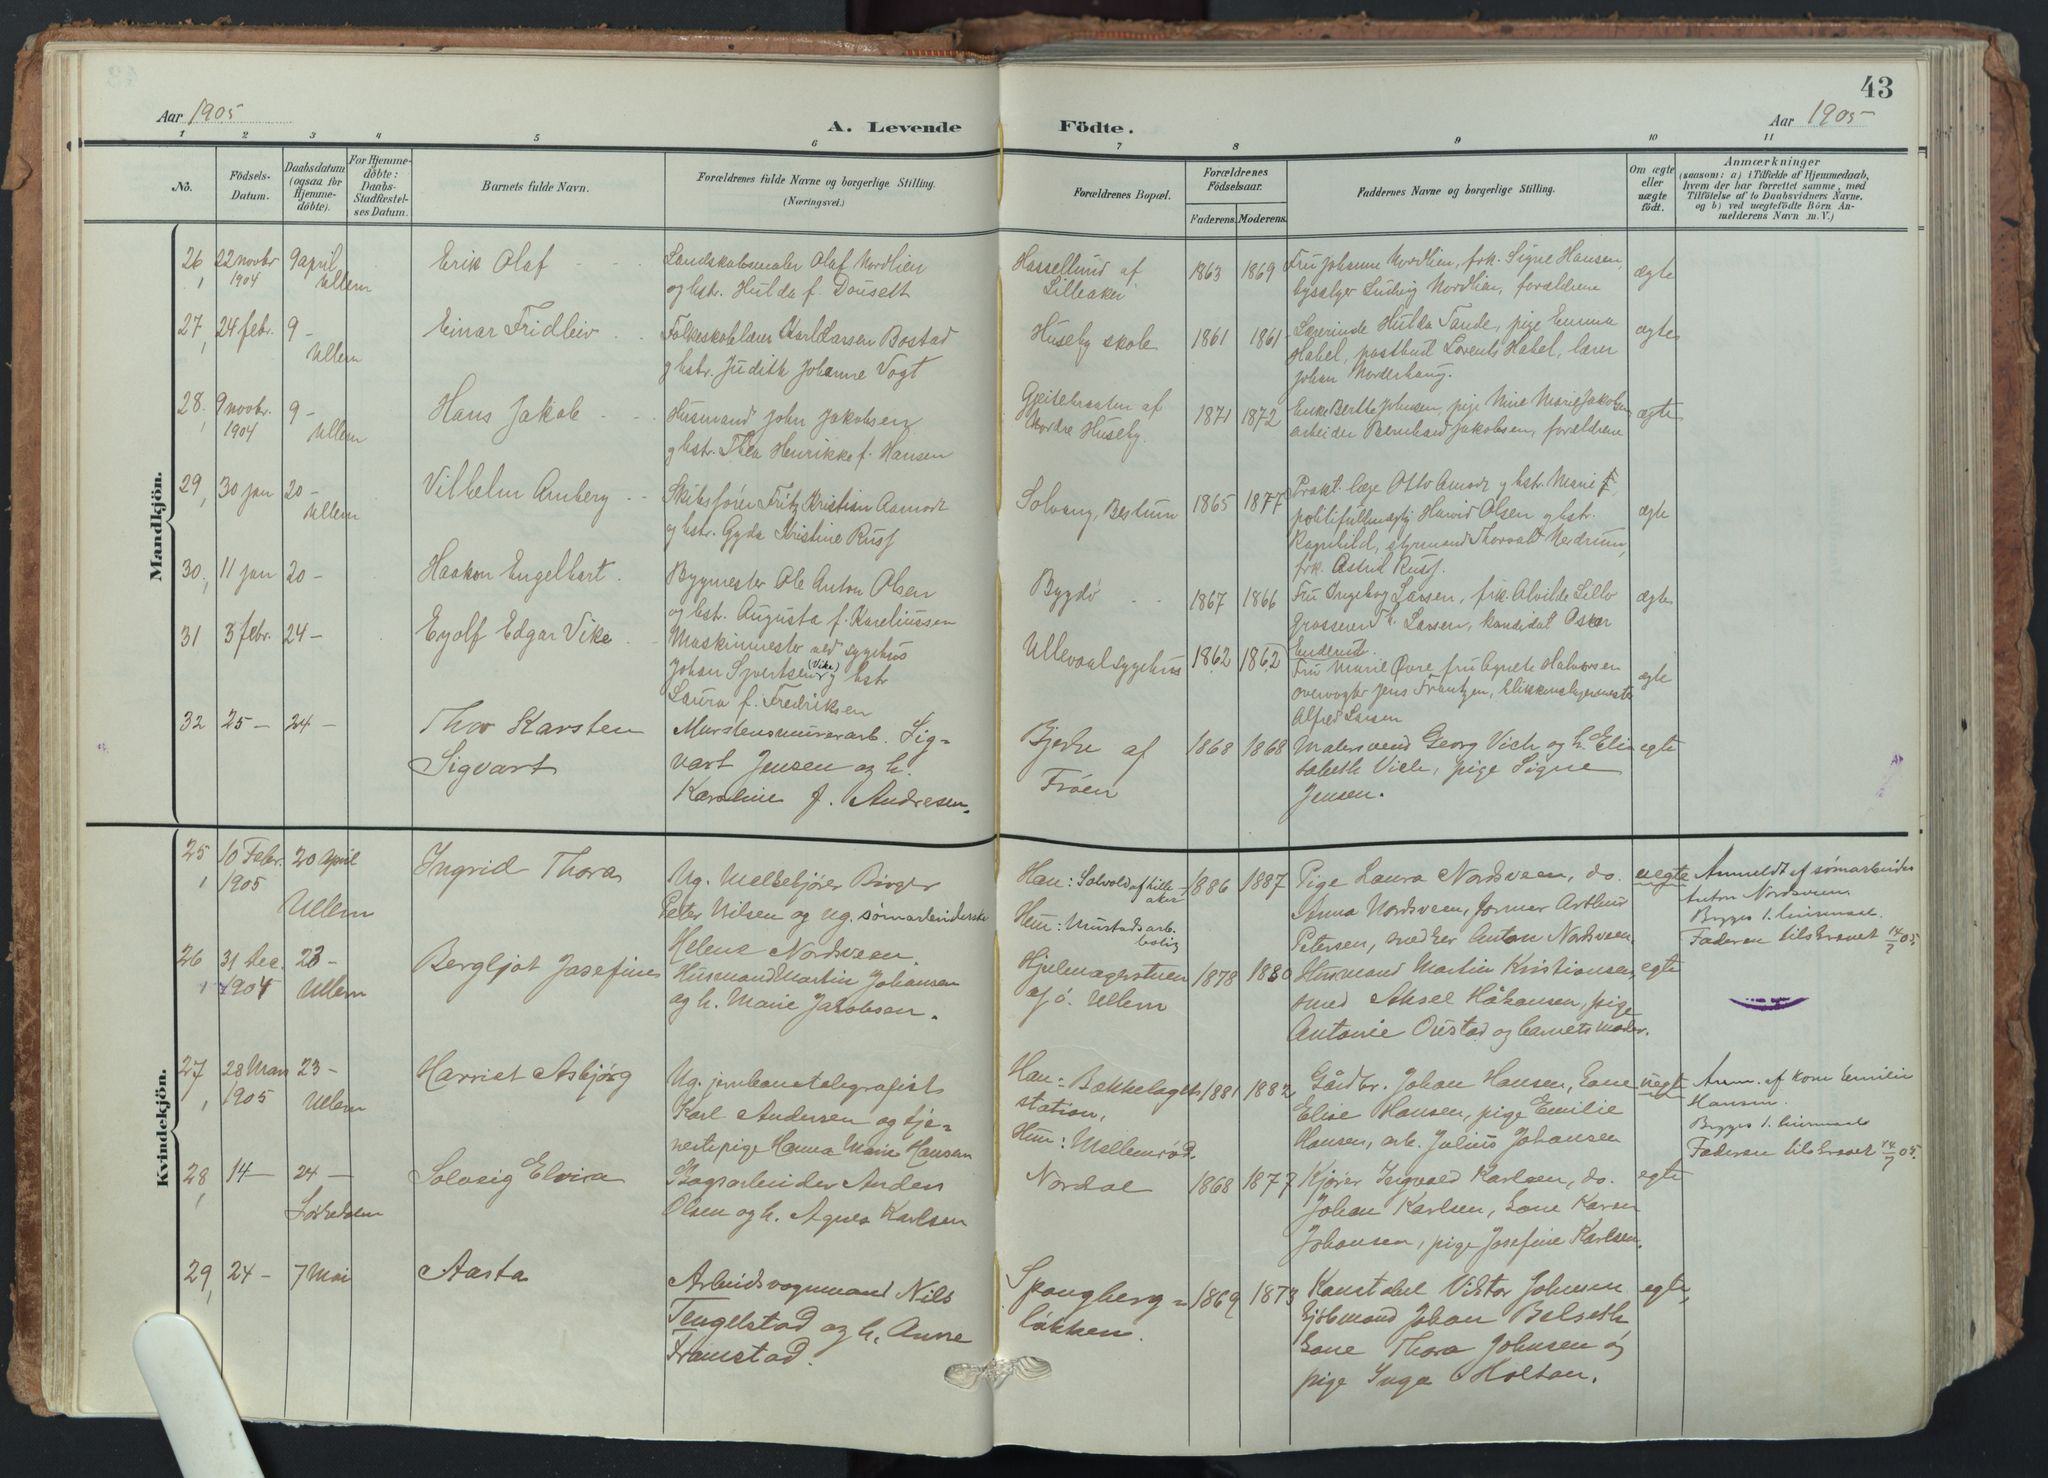 43
Aar 1905
A. Levende Födte.
Aar 1905
1 2 3 4 5 6 7 8 9 10 11
No.
Födsels-
Datum.
Daabsdatum
(ogsaa för
Hjemme-
döbte).
For Hjemme-
döbte:
Daabs-
Stadfæstel-
ses Datum.
Barnets fulde Navn.
Forældrenes fulde Navne og borgerlige Stilling.
(Næringsvei.)
Forældrenes Bopæl.
Forældrenes
Födselsaar.
Faderens. Moderens.
Faddernes Navne og borgerlige Stilling.
Om ægte
eller
uægte
födt.
Anmærkninger
(saasom: a) i Tilfælde af Hjemmedaab,
hvem der har forrettet samme, med
Tilföielse af to Daabsvidners Navne,
og b) ved uægtefödte Börn An-
melderens Navn m. V.)
Mandkjön.
26 22 novbr 1904
9 april Ullern
Erik Olaf
Landskabsmaler Olaf Nordlien
og hstr. Hulda f. Dousett
Hassellund af
Lilleaker
1863 1869
Fru Johanne Nordlien, frk. Signe Hansen,
Ludvig Nordlien, forældrene
ægte
27, 24 febr.
9 - Ullern
Einar Fridleiv
Folkeskolelærer Karl Larsen Bostad
og hstr. Judith Johanne Vogt
Huseby skole
1861 1861
Lærerinde Hulda Sande, pige Emma
Habel, postbud Lorents Habel, lærer
Johan Norderhaug.
ægte
28, 9 novbr. 1904
9 - Ullern
Hans Jakob
Husmand John Jakobsen
og hstr. Thea Henrikke f. Hansen
af
Nordre Huseby.
1871 1872
Enke Berthe Johnsen, pige Marie Jakobsen
arbeider Bernhard Jakobsen, forældrene
ægte
29, 30 jan
20 - Ullern
Vilhelm Amberg
Skibsfører Fritz Kristian Aamodt
og hstr. Gyda Kristine Rusf
Solvang, Bestum
1865 1877
Prakt. læge Otto Amodt og hstr. Marie F.,
politifuldmægtig Harvid Olsen og hstr.
Ragnhild, styrmand Thorvald Herdrum,
frk. Astrid Rusf.
ægte
30, 11 jan
20 -
Haakon Engelhart.
Bygmester Ole Anton Olsen
og hstr. Augusta f. Kareliussen
Bygdö
1867 1866
Fru Ingeborg Larsen, frk. Alvilde Lillo
grosserer Th. Larsen, kandidat Oskar
Enderud.
ægte
31 3 febr.
24 -
Eyolf Edgar Vike
Maskinmester ved sygehus
Johan Syvertsen (Vike) og hstr
Laura f. Fredriksen
Ullevaal sygehus
1862 1862
Fru Marie Øvre, fru Agnete Halvorsen
overvogter Jens Frantzen, blikkenslagermester
Alfred Larsen
ægte
32 25 -
24 -
Thor Karsten
Sigvart
Murstensmurerarb. Sig-
vart Jensen og h.
Karoline f. Andresen.
Bjerke af
Fröen
1868 1868
Malersvend Georg Vich og h. Elis
sabeth Vich, pige Signe
Jensen.
egte
Kvindekjön.
25 10 Febr. 1905
20 April Ullern
Ingrid Thora
Ug. Melkekjører Birger
Peter Nilsen og ug. sömarbeiderske
Helene Nordsveen.
Han: Solvold af Lille-
aker
Hun: Mustads arb.
bolig
1886 1887
Pige Laura Nordsveen, do.
Anna Nordsveen, former Arthur
Petersen, snedker Anton Nordsveen.
uegte
Anmeldt af sömarbeider
Anton Nordsveen
Bygges 1. linormael.
Faderen tilskrevet 14/7 05.
26 31 Dec. 1904
23 - Ullern
Bergljot Josefine
Husmand Martin Johansen
og h. Marie Jacobsen.
Hjelmagerstuen
af ö. Ullern
1878 1880
Husmand Martin Kristiansen,
smed Aksel Håkansen, pige
Antonie Oustad og barnets moder.
egte
27 28 Mars 1905
23 - Ullern
Harriet Asbjörg
Ug. jernbanetelegrafist
Karl Andersen og tje-
nestepige Hanna Marie Hansen
Han: Bækkelagets
station,
Hun: Mellemröd.
1881 1882
Gårdbr. Johan Hansen, Kone
Elise Hansen, pige Emilie
Hansen, arb. Julius Johansen
uegte
Anm. af kone Emilie
Hansen.
Bygges 1. linormael
Faderen tilskrevet 14/7 05.
28 14 -
24 - Sörkedalen
Solveig Elvira
Skogsarbeider Anders
Olsen og h. Agnes Karlsen
Nordal
1868 1877
Kjører Ingvald Karlsen, do.
Johan Karlsen, Kone Karen
Johansen, pige Josefine Karlsen.
egte
29, 24 -
7 Mai
Aasta
Arbeidsvognmand Nils
Tengelstad og h. Anne
Framstad.
Spangberg-
løkken.
1869 1873
Konstabel Viktor Johnsen
Kjöbmand Johan Belseth
Kone Thora Johnsen og
pige Inga Moltan.
egte